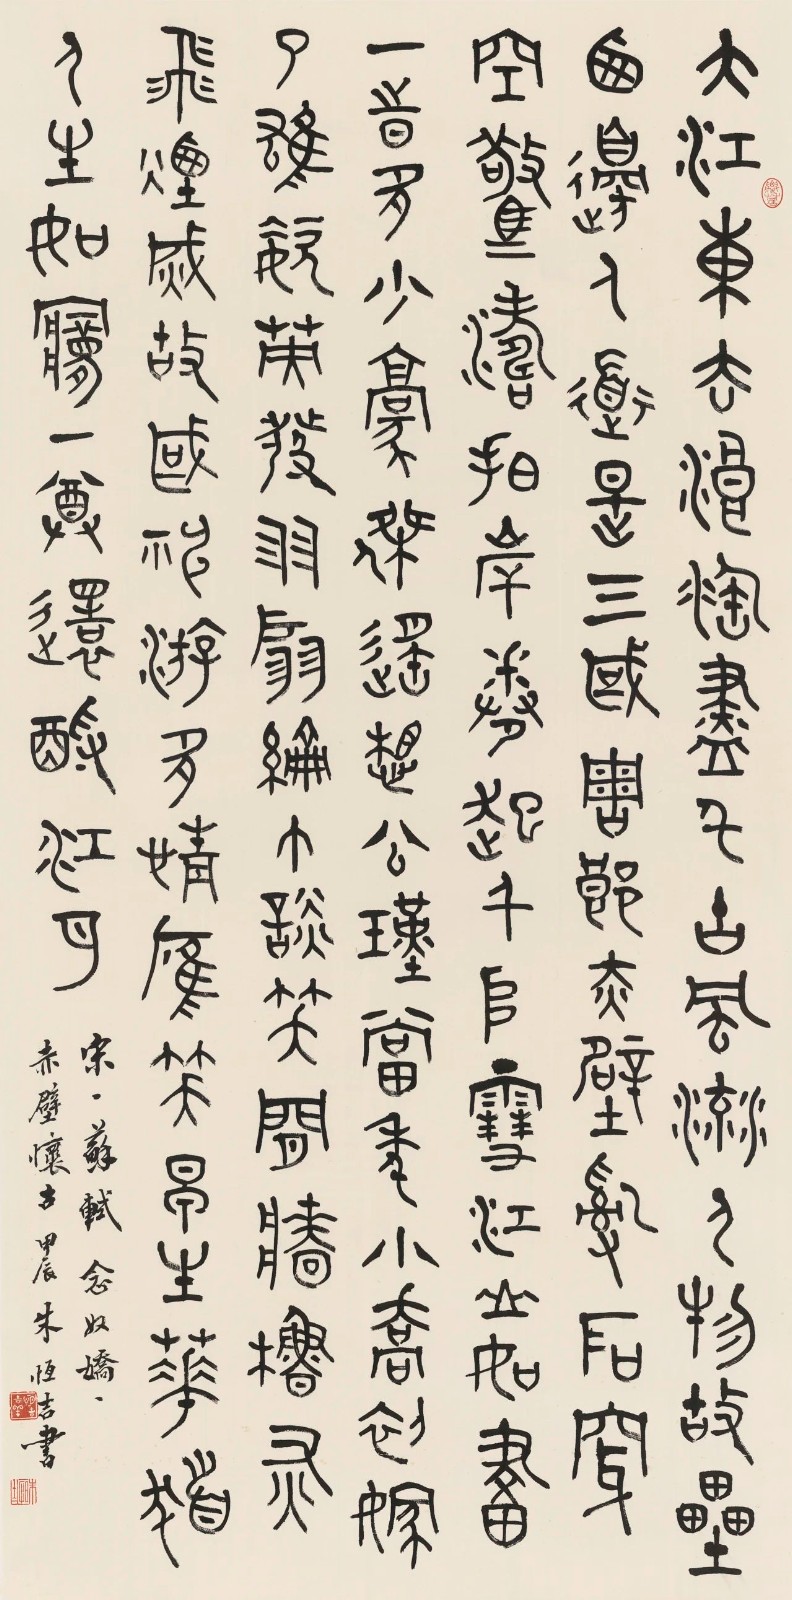 大江東去浪淘盡千古風流人物故壘
西邊人道是三國周郎赤壁亂石穿
空驚濤拍岸卷起千堆雪江山如畫
一時多少豪傑遙想公瑾當年小喬初嫁
了雄姿英發羽扇綸巾談笑間牆櫓灰
飛煙滅故國神游多情應笑早生華髮
人生如夢一尊還酹江月
宋、蘇軾 念奴嬌、
赤壁懷古 甲辰 朱恒吉書